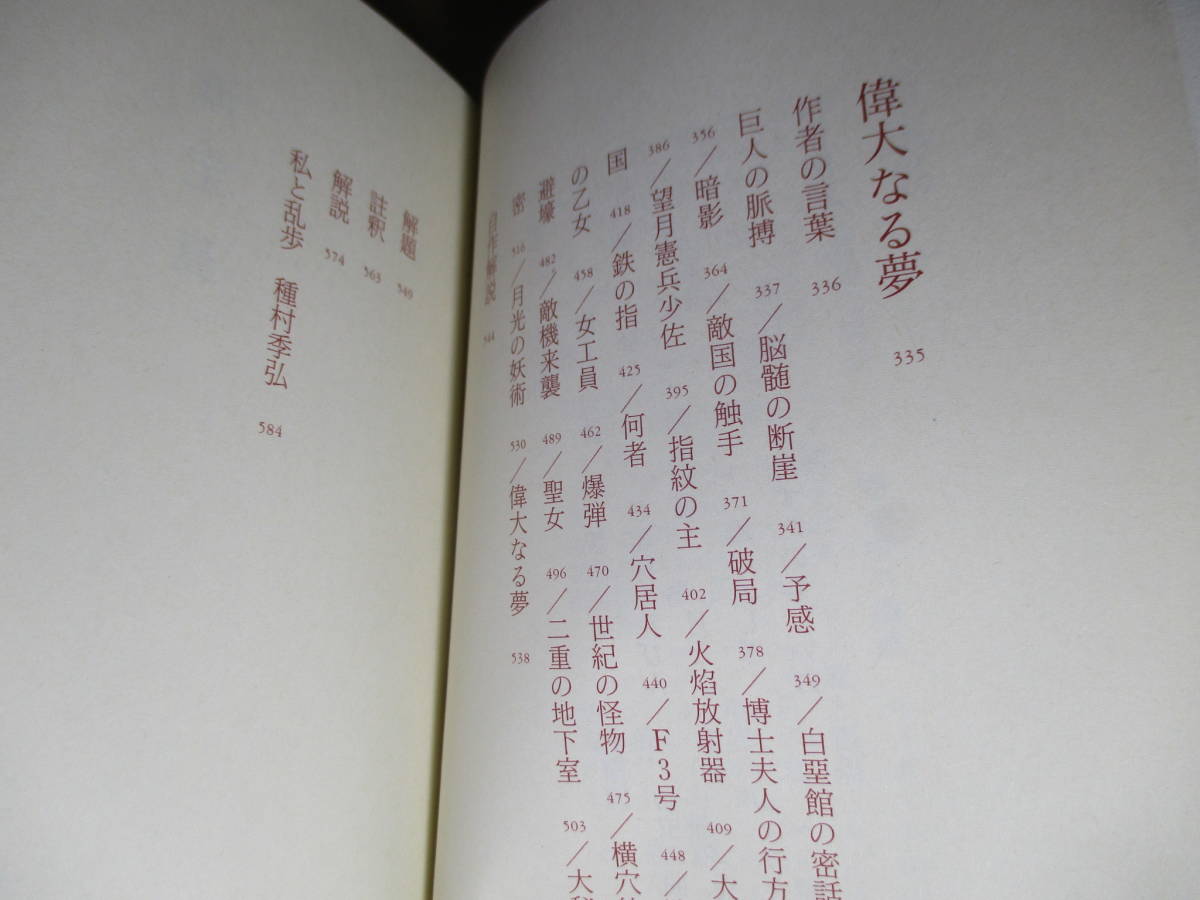 偉大なる夢 335
作者の言葉 336
巨人の脈搏 337／脳髄の断崖 341／予感 349／白堊館の密話
356／暗影 364／敵国の触手 371／破局 378／博士夫人の行方
386／望月憲兵少佐 395／指紋の主 402／火焔放射器 409／大
国 418／鉄の指 425／何者 434／穴居人 440／F3号 448／
の乙女 458／女工員 462／爆弾 470／世紀の怪物 475／横穴
避壕 482／敵機来襲 489／聖女 496／二重の地下室 503／大
密 516／月光の妖術 530／偉大なる夢 538
自作解説 544
解題 549
註釈 563
解説 574
私と乱歩 種村季弘 584